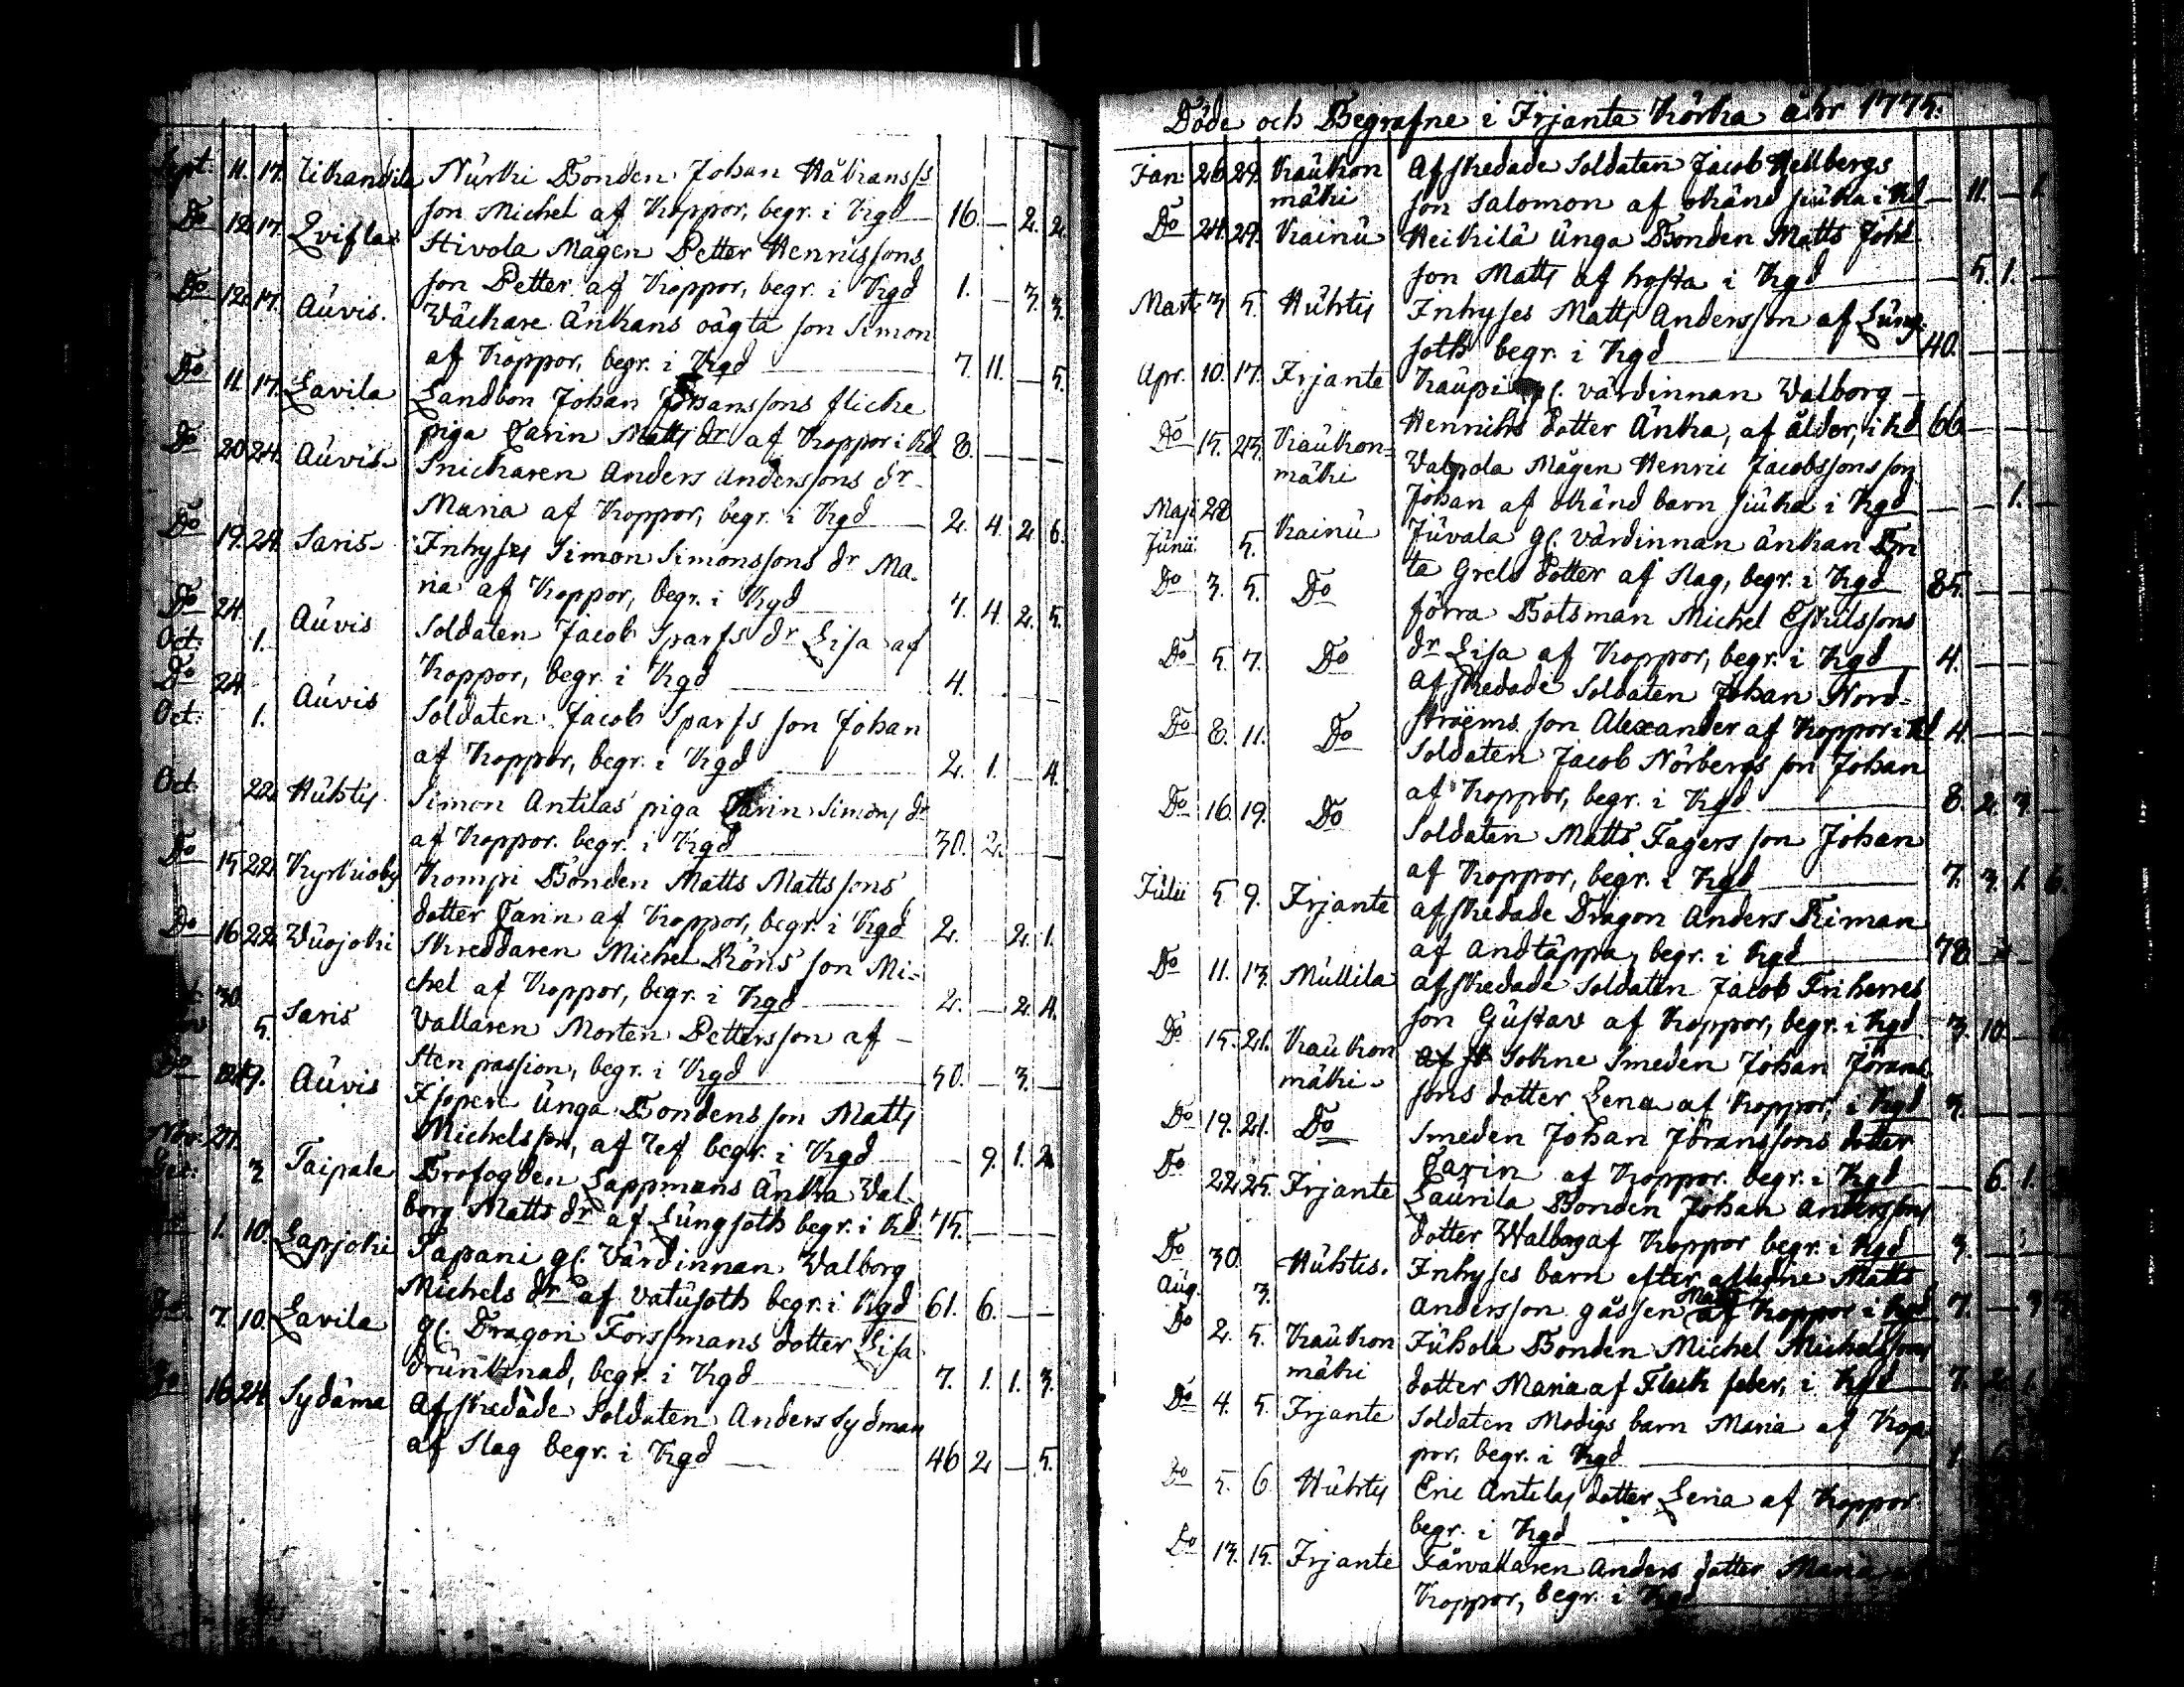 Sept: 11. 17. Likandila Nürki Bonden Johan Håkanss:s
son Michel af Koppor, begr. i Kgd 16. — 2. 2.
Do 12. 17. Qviflax Stivola Mågen Petter Henrissons
son Petter af Koppor, begr. i Kgd 1. — 3. 3.
Do 12. 17. Aüvis. Wäckare Änkans oägta son Simon
af Koppor, begr. i Kgd 7. 11. — 5.
Do 11. 17. Lavila Landbon Johan Johanssons flicke
piga Carin Matts dr af Koppor i Kd 8. — — —
Do 20 24. Aüvis Snickaren Anders Anderssons dr
Maria af Koppor, begr. i Kgd 2. 4. 2. 6.
Do 19. 24. Saris Inhyses Simon Simonssons dr Ma-
ria af Koppor, begr. i Kgd 7. 4. 2. 5.
Do 24. Aüvis Soldaten Jacob Sparfs dr Lisa af
Oct: 1. Koppor, begr. i Kgd 4.
Do 24. Aüvis Soldaten Jacob Sparfs son Johan
Oct: 1. af Koppor, begr. i Kgd 2. 1. — 4.
Oct. 22. Hühtis Simon Antilas piga Carin Simons dr
af Koppor. begr. i Kgd 30. 2. —
Do 15. 22. Kyrkioby Kompi Bonden Matts Mattssons
dotter Carin af Koppor, begr. i Kgd 2. — 2. 1.
Do 16 22. Wüojoki Skreddaren Michel Röns son Mi-
chel af Koppor, begr. i Kgd 2. — 2. 4.
30. Saris Vallaren Morten Pettersson af
5. Sten passion, begr. i Kgd 50. — 3. —
Do 19. Aüvis Isopere Ünga Bondens son Matts
Michelsson, af Ref begr. i Kgd — 9. 1. 2.
Nov. 27. Taipale Brofogden Lappmans Änka Wal-
Dec: 3. borg Matts dr af Lüngsoth begr. i Kd 75. — — —
1. 10. Lapjoki Tapani gl. Värdinnan Walborg
Michels dr af vatüsoth begr. i Kgd 61. 6. — —
Do 7. 10. Lavila gl. Dragon Forssmans dotter Lisa
drünknad, begr. i Kgd 7. 1. 1. 3.
Do 16. 24. Sydäma Afskedade Soldaten Anders Sydman
af Slag begr. i Kgd 46 2. — 5.
Döde och Begrafne i Irjanta Körka åhr 1775.
Jan: 26 29. Kaükon Afskedade Soldaten Jacob Hellbergs
mäki son Salomon af okänd siüka i Kd — 11. — 1.
Do 24. 29. Kainü Heikilä Ünga Bonden Matts Joh:s
son Matts af hosta i Kgd — 5. 1. —
Mart: 3. 5. Hühtis Inhyses Matts Andersson af Lüng-
soth begr. i Kgd 40. — — —
Apr. 10. 17. Irjante Kaüpi gl. värdinnan Walborg
Henrichs dotter Änka, af ålder, i Kd 66
Do 15. 23. Kaükon= Walpola Mågen Henric Jacobssons son
mäki Johan af okänd barn siüka i Kgd — — 1. —
Maji 28 Kainü Jüvala gl. värdinnan änkan Bri
Jünii. 5. ta Grels dotter af Slag, begr. i Kgd 85. — — —
Do 3. 5. Do förra Botsman Michel Eskilssons
dr Lisa af Koppor, begr. i Kgd 4. — — —
Do 5. 7. Do afskedade Soldaten Johan Nord-
ströems son Alexander af Koppor i Kd 4. — — —
Do 8. 11. Do Soldaten Jacob Nörbergs son Johan
af Koppor, begr. i Kgd 8. 2. 3. —
Do 16. 19. Do Soldaten Matts Fagers son Johan
af Koppor, begr. i Kgd 7. 3. 1. 6.
Jülii 5 9. Irjante afskedade Dragon Anders Riman
af andtäppa, begr. i Kgd 78. — —
Do 11. 13. Müllila afskedade Soldaten Jacob Friherres
son Güstav af Koppor, begr. i Kgd 3. 10. —
Do 15. 21. Kaükon Sokne Smeden Johan Jörans
mäki sons dotter Lena af Koppor, i Kgd 3. — —
Do 19. 21. Do Smeden Johan Jöranssons dotter
Carin af Koppor. begr. i Kgd — 6. 1.
Do 22 25. Irjante Laürila Bonden Johan Anderssons
dotter Walborg af Koppor begr. i Kgd 3. —
Do 30. Hühtis. Inhyses barn efter aflidne Matts
Aüg. 3. Andersson gåssen Matts af Koppor i Kgd 7. — 3
Do 2. 5. Kaükon Jühola Bonden Michel Michelssons
mäki dotter Maria af Fleck feber, i Kgd 7. 2. 1.
Do 4. 5. Irjante Soldaten Modigs barn Maria af Kop-
por. begr. i Kgd 1.
Do 5. 6 Hühtis Eric Antilas dotter Lena af Koppor
begr. i Kgd
Do 13. 15. Irjante Fårvallaren Anders dotter Maria af
Koppor, begr. i Kgd